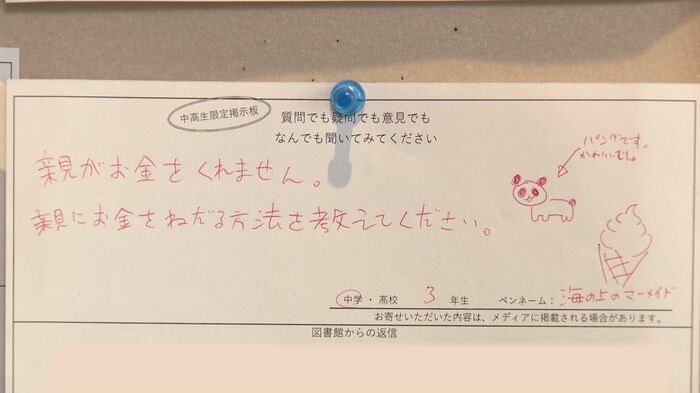 中高生限定掲示板
質問でも疑問でも意見でも
なんでも聞いてみてください
親がお金をくれません。
親にお金をねだる方法を教えてください。
パンダです。
かわいいむね
中学・高校 3 年生 ペンネーム：海の上のマーメイド
お寄せいただいた内容は、メディアに掲載される場合があります。
図書館からの返信